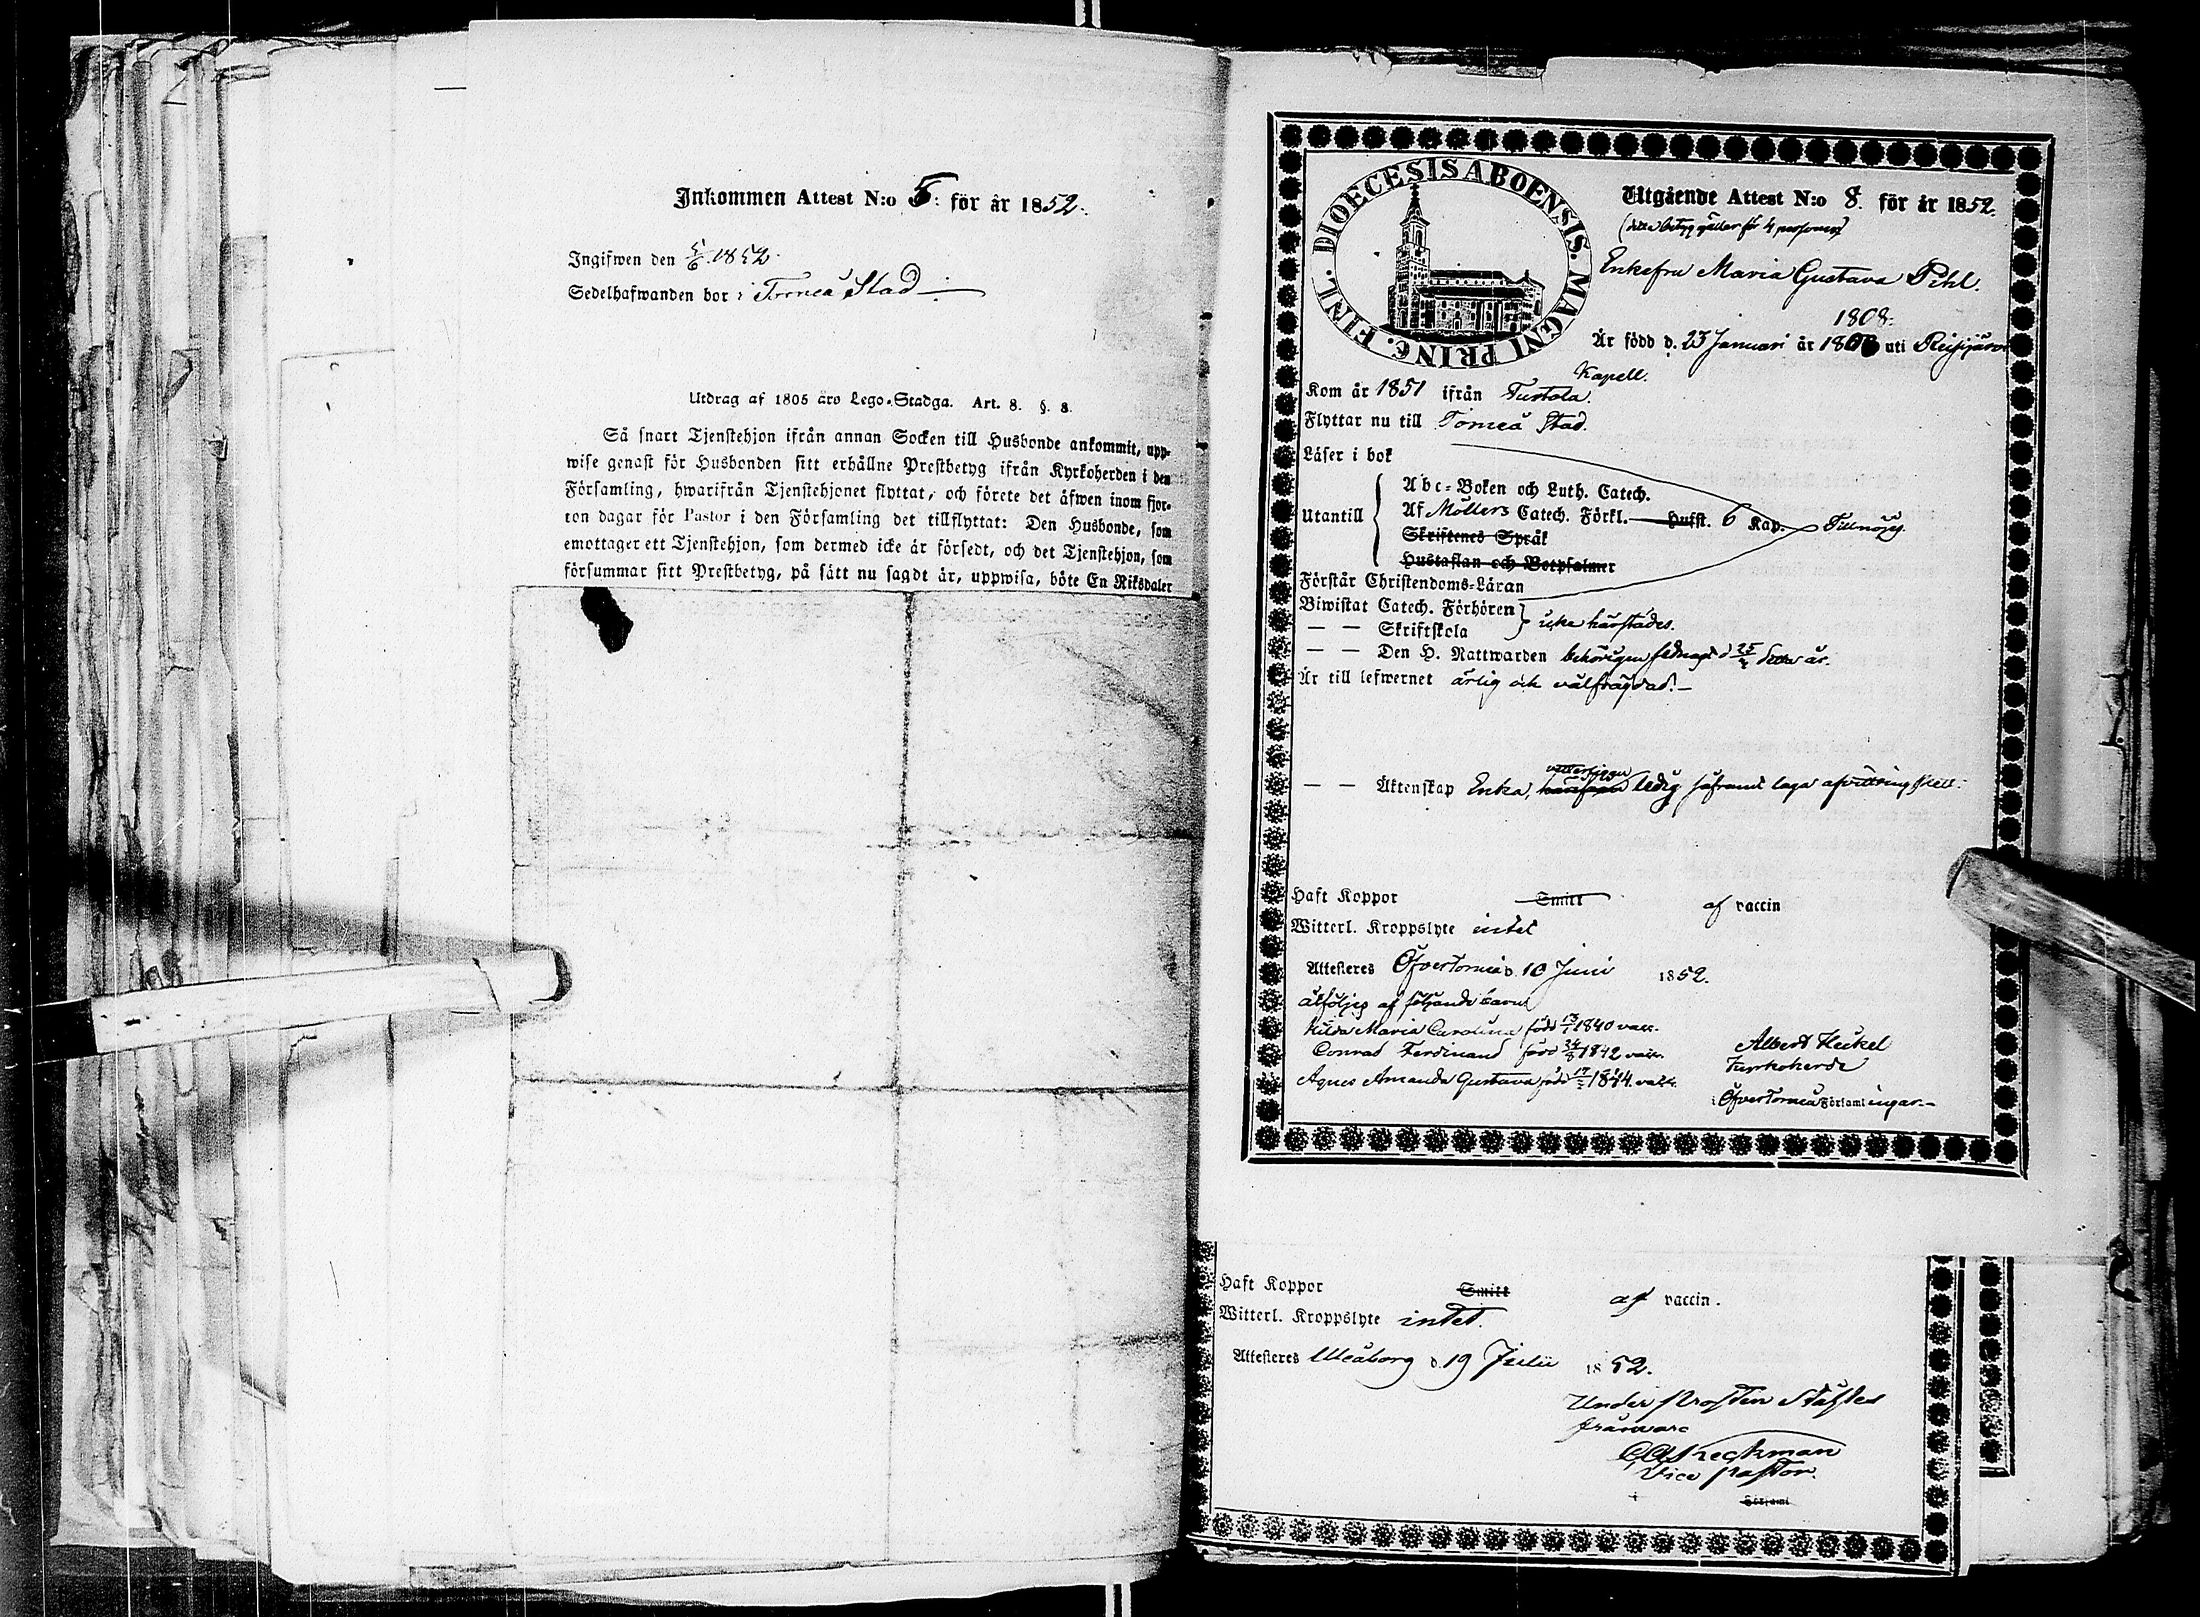 Inkommen Attest N:o 5: för år 1852.
Ingifwen den 5/6 1852.
Sedelhafwanden bor i Torneå Stad
Utdrag af 1805 års Lego-Stadga. Art. 8. §. 8.
Så snart Tjenstehjon ifrån annan Socken till Husbonde ankommit, upp-
wise genast för Husbonden sitt erhållne Prestbetyg ifrån Kyrkoherden i den
Församling, hwarifrån Tjenstehjonet flyttat, och förete det äfwen inom fjor-
ton dagar för Pastor i den Församling det tillflyttat: Den Husbonde, som
emottager ett Tjenstehjon, som dermed icke är försedt, och det Tjenstehjon, som
försummar sitt Prestbetyg, på sätt nu sagdt är, uppwisa, böte En Riksdaler
DIOECESIS ABOENSIS. MAGNI PRINC. FINL.
Utgående Attest N:o 8. för år 1852.
(detta betyg gäller för 4 personer)
Enkefru Maria Gustava Pihl.
1808.
Är född d. 23 Januari år 18 uti Reisjärvi
Kapell.
Kom år 1851 ifrån Turtola.
Flyttar nu till Torneå Stad.
Läser i bok
Utantill
Abc-Boken och Luth. Catech.
Af Möllers Catech. Förkl. Hufst. 6 Kap. Tillnöjg.
Skriftenes Språk
Hustaflan och Botpsalmer
Förstår Christendoms-Läran
Biwistat Catech. Förhören
— — Skriftskola icke härstädes.
— — Den H. Nattwarden behörigen sednast d 25/4 detta år.
Är till lefwernet ärlig och välfräjdad.
— — Äktenskap Enka, ledig såframt laga afvittring skett.
Haft Koppor Smitt af vaccin
Witterl. Kroppslyte intet
Attesteres Öfvertorneå d. 10 Juni 1852.
åtföljes af följande barn
Hilda Maria Carolina född 13/1 1840 vacc.
Conrad Ferdinand född 24/8 1842 vacc.
Agnes Amanda Gustava född 1844. vacc.
Albert Heikel
Kyrkoherde
i Öfvertorneå Församlingar.
Haft Koppor Smitt af vaccin.
Witterl. Kroppslyte intet.
Attesteres Uleåborg d. 19 Julii 1852.
Under Prosten Ståhles
frånvaro
Keckman
Vice pastor.
Församl